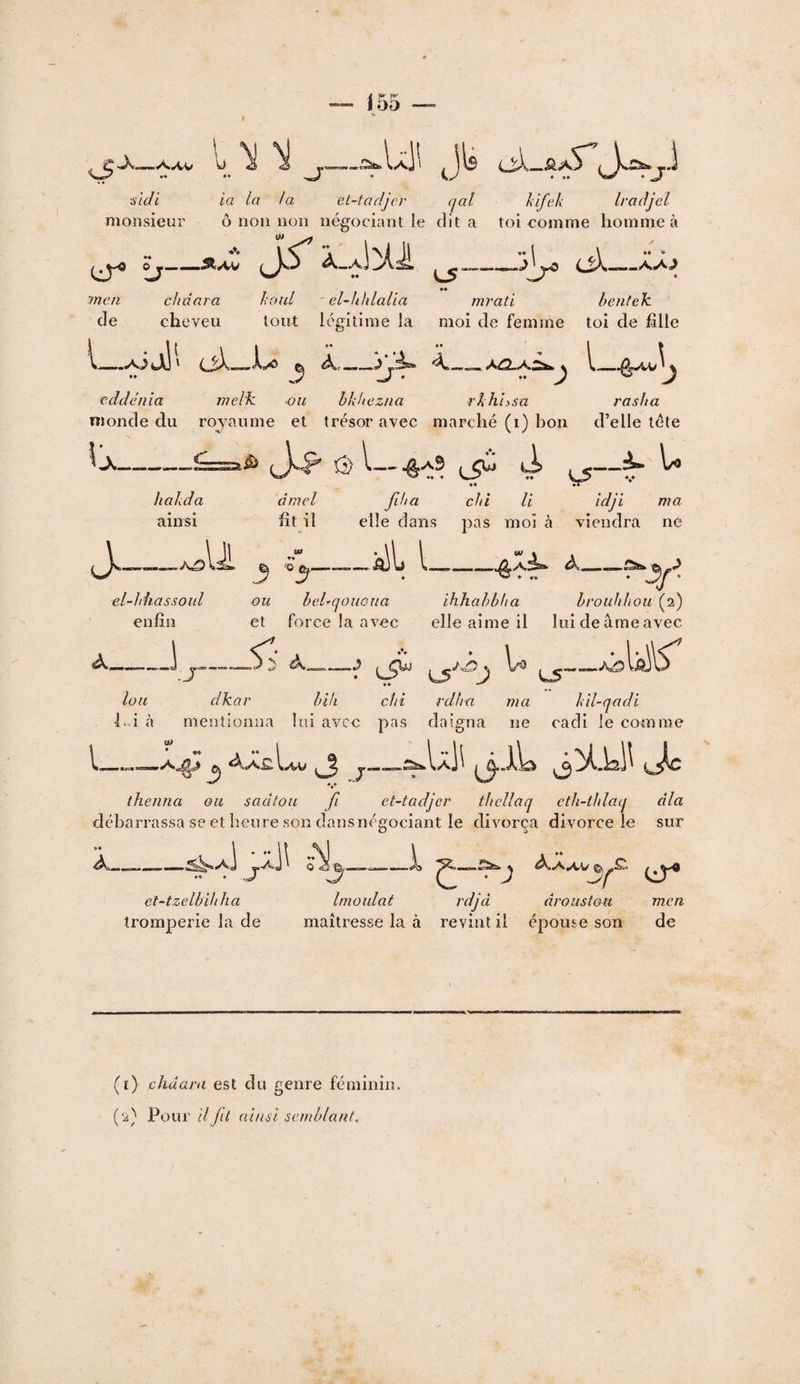 — 155 —
لرجل كيفك قال التاجر لا لا يا سيدي
sidi ia la la et-tadjer qal kifek lradjel
monsieur ô non non négociant le dit a toi comme homme à
بنتك مراتي الحلالية كلّ شعرة من
men chdara koul el-hhlalia mrati bentek
de cheveu tout légitime la moi de femme toi de fille
راسها رخيصة بخزنة و ملك الدنيا
eddénia melk ou bkhezna rkhissa rasha
monde du royaume et trésor avec marché (1) bon d'elle tête
ما يجي لي شي فيها ۞ عمل هكدا
hakda âmel fiha chi li idji ma
ainsi fit il elle dans pas moi à viendra ne
بروحه يحبّها بالقوّة و الحاصل
el-hhassoul ou bel-qououa ihhabbha brouhhou (2)
enfin et force la avec elle aime il lui de âme avec
كالقاضي ما رضي شي به ذكر له
lou dkar bih chi rdha ma kil-qadi
lui à mentionna lui avec pas daigna ne cadi le comme
على الطلاق طلق التاجر في ساعته و تهنّا
thenna ou saâtou fi et-tadjer thellaq eth-thlaq âla
débarrassa se et heure son dans négociant le divorça divorce le sur
من عروسته رجع لمولاة التزلبيحة
et-tzelbihha lmoulat rdjâ âroustou men
tromperie la de maîtresse la à revint il épouse son de
(1) châara est du genre féminin.
(2) Pour il fit ainsi semblant.